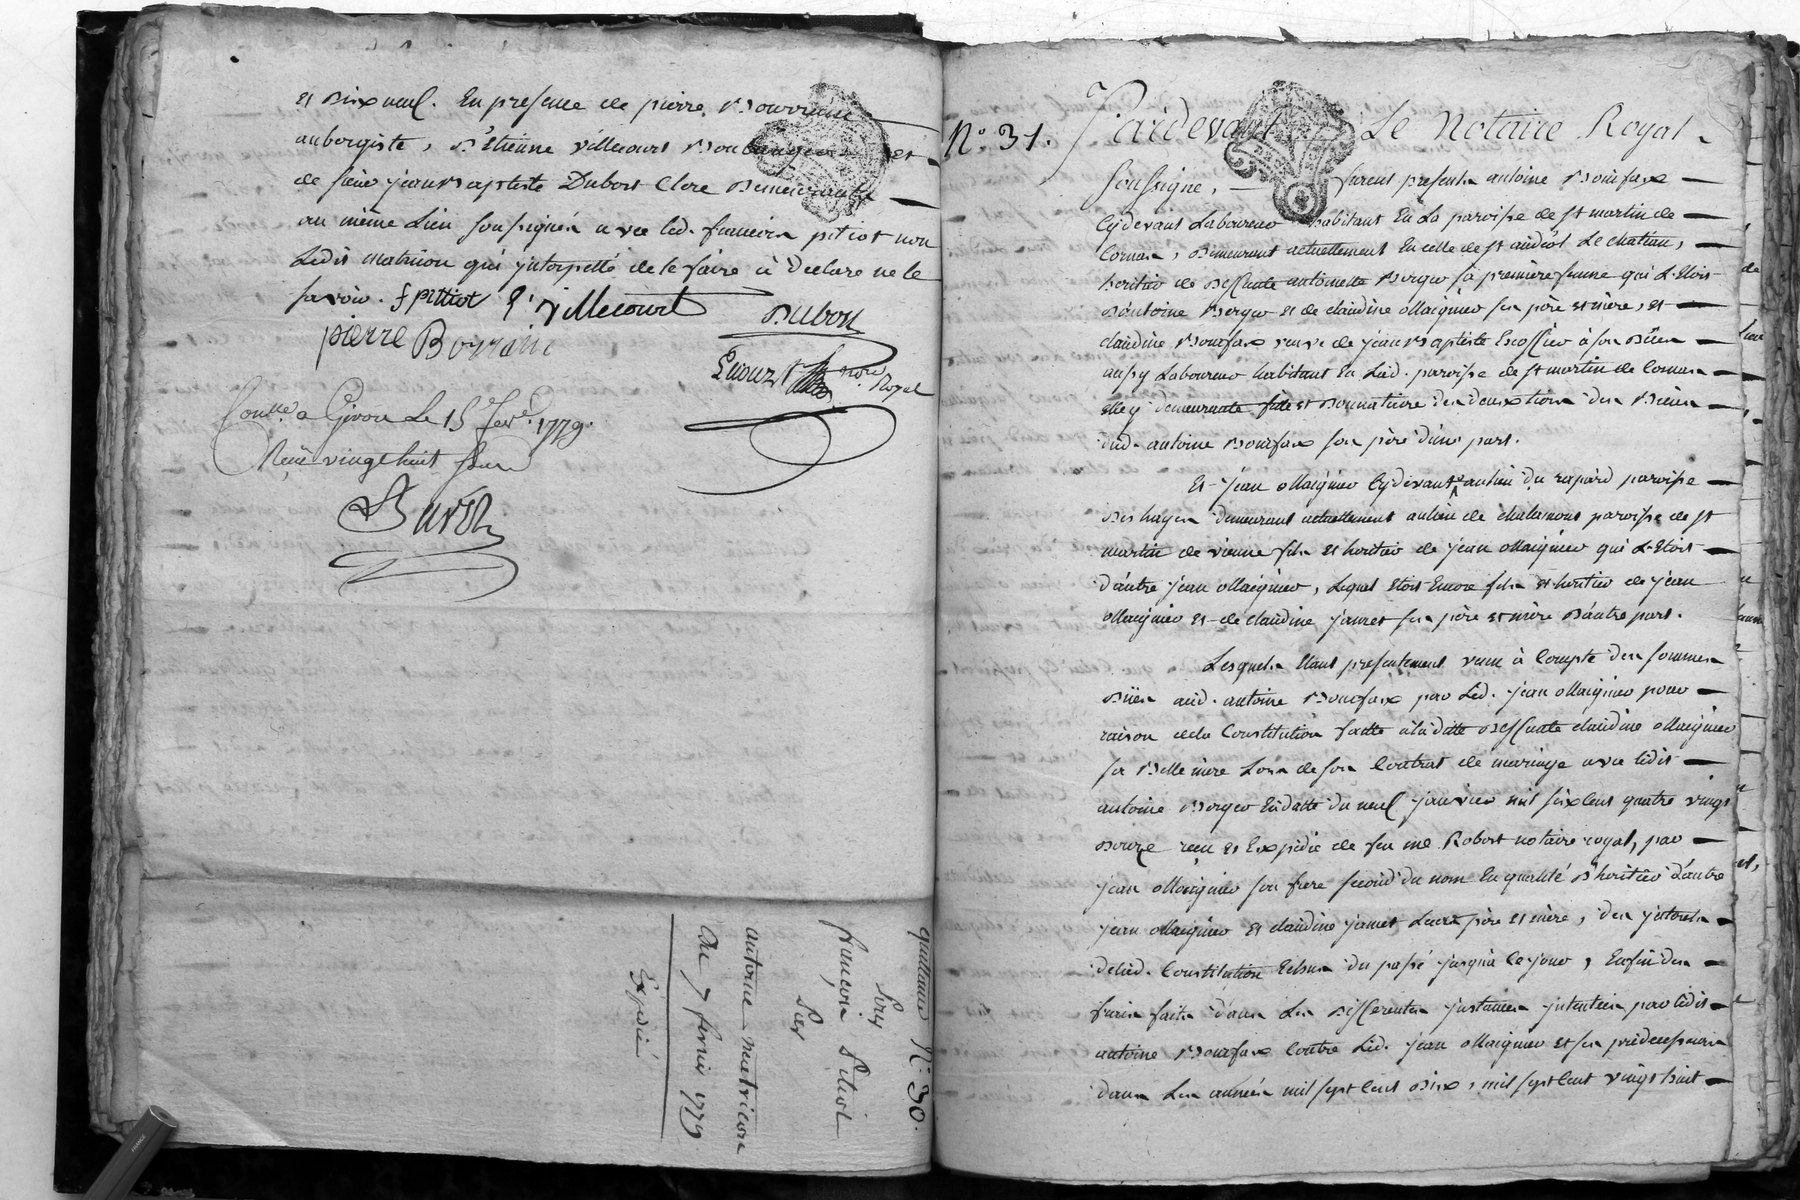 et dix neuf. En presence de pierre Bourrin
aubergiste, d'Etienne villecourt Boulanger et
de sieur jean Baptiste Dubost Clerc demeurants
au même Lieu soussignés avec led. francois pitiot non
Ledit matricon qui interpellé de le faire à declaré ne le
savoir. f pittiot E. villecourt Dubost
pierre
not. Royal
a Givors Le 15 fev. 1779.
Recu vingt huit sous
quittance N° 30.
Sieur
francois Pitiot
Par
antoine matricon
Du 7 fevrier 1779
Expedié
N° 31. Pardevant Le Notaire Royal
soussigné, furent presents antoine Bonnefax
Cydevant Laboureur habitant En La paroisse de st martin de
Cornas, demeurant actuellement En celle de st andéol Le chateau,
heritier de deffunte antoinette Berger sa premiere femme qui L'etoit
d'antoine Berger et de claudine Maignier ses père et mère, et
claudine Bonnefax veuve de jean Baptiste Escoffier à son décès
aussy Laboureur habitant En Lad. paroisse de st martin de Cornas
elle y demeurante fille et donnataire des deux tiers des Biens
dud. antoine Bonnefax son père d'une part.
Et jean Maignier Cydevant au lieu du rapard paroisse
des hayes demeurant actuellement au lieu de chalamont paroisse de st
martin de vienne fils et heritier de jean Maignier qui L'etoit
d'autre jean Maignier, Lequel etoit Encore fils et heritier de jean
Maignier et de claudine jamet ses père et mère d'autre part.
Lesquels Etant presentement venu à Compte des sommes
dües aud. antoine Bonnefax par Led. jean Maignier pour
raison de la Constitution faitte à laditte deffunte claudine Maignier
sa Belle mere Lors de son Contrat de mariage avec ledit
antoine Berger En datte du neuf janvier mil six cent quatre vingt
douze recu et Expedié de feu me Robert notaire royal, par
jean Maignier son frere second du nom En qualité d'heritier d'autre
jean Maignier et claudine jamet Leurs père et mère, des jnterets
de lad. Constitution Echus du passé jusqu'à ce jour, Enfin des
frais faits dans Les differentes jnstances jntentées par ledit
antoine Bonnefax Contre Led. jean Maignier et ses predecesseurs
dans Les années mil sept cent dix, mil sept cent vingt huit